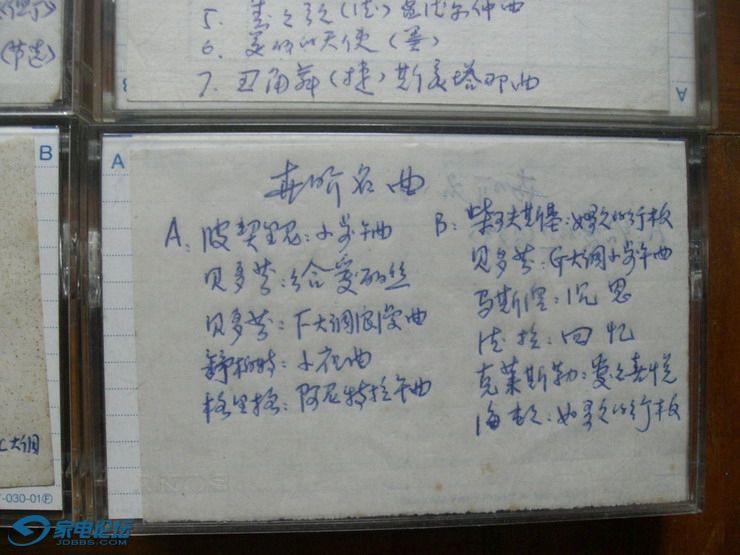 (节选)
5. 爱之歌(法)
6. 美丽的天使(墨)
7. 丑角舞(捷)斯美塔那曲
A
B
A
世界名曲
A: 波契里尼:小步午曲
贝多芬:给爱丽丝
贝多芬:F大调浪漫曲
舒柏特:小夜曲
格里格:阿尼特拉午曲
B: 柴可夫斯基:如歌的行板
贝多芬:G大调小步午曲
马斯涅:沉思
德拉:回忆
克莱斯勒:爱之喜悦
海顿:如歌的行板
C大调
-030-01Ⓕ
家电论坛
JDBBS.COM